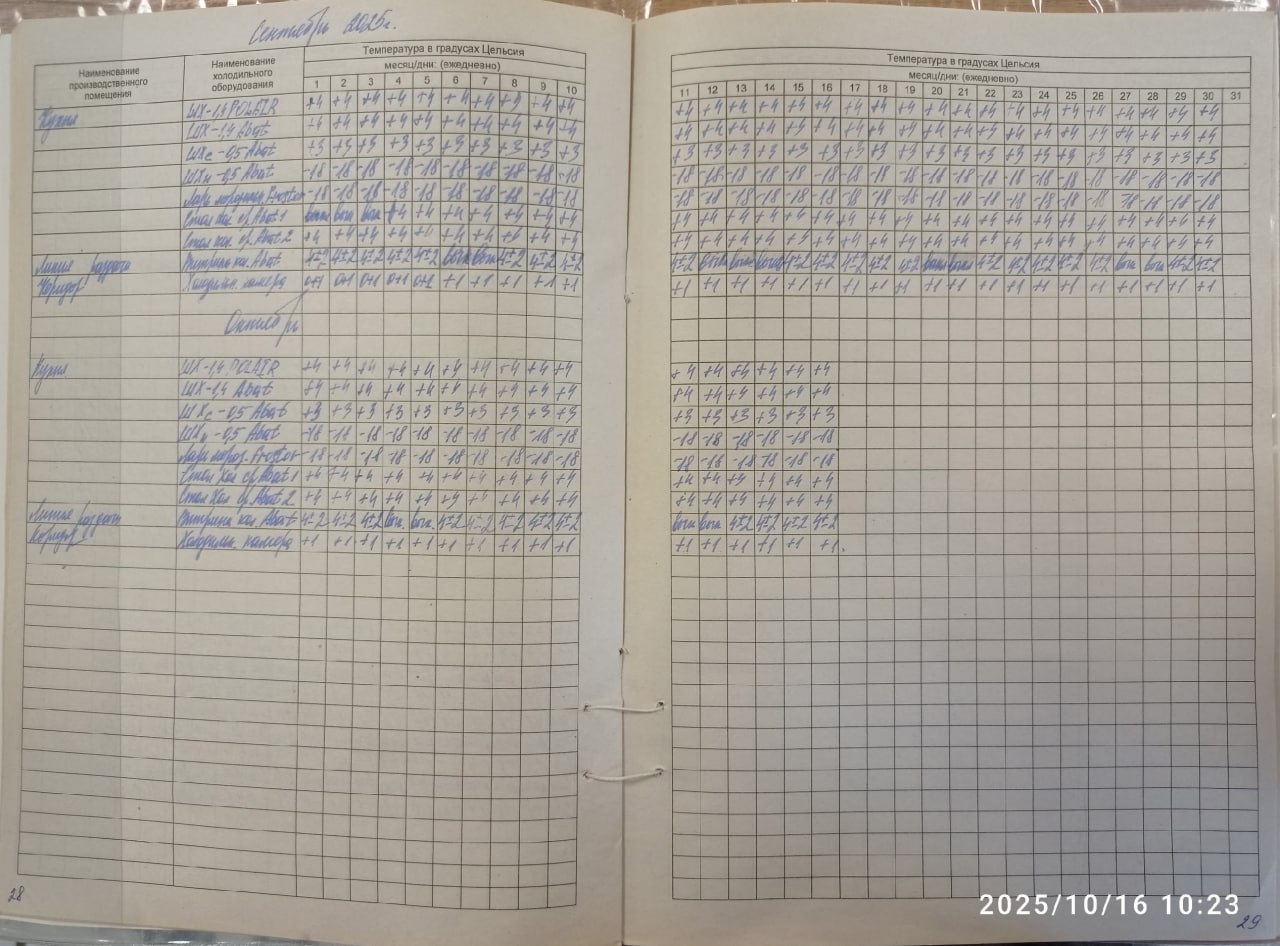 Сентябрь 2025г.
Наименование производственного помещения
Наименование холодильного оборудования
Температура в градусах Цельсия
месяц/дни: (ежедневно)
1 2 3 4 5 6 7 8 9 10
Температура в градусах Цельсия
месяц/дни: (ежедневно)
11 12 13 14 15 16 17 18 19 20 21 22 23 24 25 26 27 28 29 30 31
Кухня ШХ-1,4 POLAIR +4 +4 +4 +4 +4 +4 +4 +4 +4 +4 +4 +4 +4 +4 +4 +4 +4 +4 +4 +4 +4 +4 +4 +4 +4 +4 +4 +4 +4 +4
ШХ-1,4 Abat +4 +4 +4 +4 +4 +4 +4 +4 +4 +4 +4 +4 +4 +4 +4 +4 +4 +4 +4 +4 +4 +4 +4 +4 +4 +4 +4 +4 +4 +4
ШХс-0,5 Abat +3 +3 +3 +3 +3 +3 +3 +3 +3 +3 +3 +3 +3 +3 +3 +3 +3 +3 +3 +3 +3 +3 +3 +3 +3 +3 +3 +3 +3 +3
ШХн-0,5 Abat -18 -18 -18 -18 -18 -18 -18 -18 -18 -18 -18 -18 -18 -18 -18 -18 -18 -18 -18 -18 -18 -18 -18 -18 -18 -18 -18 -18 -18 -18
Ларь морозильн. Frostor -18 -18 -18 -18 -18 -18 -18 -18 -18 -18 -18 -18 -18 -18 -18 -18 -18 -18 -18 -18 -18 -18 -18 -18 -18 -18 -18 -18 -18
Стол хол ср. Abat 1 +4 +4 +4 +4 +4 +4 +4 +4 +4 +4 +4 +4 +4 +4 +4 +4 +4 +4 +4 +4 +4 +4 +4 +4 +4 +4 +4
Стол хол. ср. Abat 2 +4 +4 +4 +4 +4 +4 +4 +4 +4 +4 +4 +4 +4 +4 +4 +4 +4 +4 +4 +4 +4 +4 +4 +4 +4 +4 +4 +4 +4 +4
Линия раздачи Витрина хол. Abat 4±2 4±2 4±2 4±2 4±2 4±2 4±2 4±2 4±2 4±2 4±2 4±2 4±2 4±2 4±2 4±2 4±2 4±2 4±2 4±2 4±2
Коридор Холодильн. камера 0+1 0+1 0+1 0+1 +1 +1 +1 +1 +1 +1 +1 +1 +1 +1 +1 +1 +1 +1 +1 +1 +1 +1 +1 +1 +1 +1 +1 +1 +1
Октябрь
Кухня ШХ-1,4 POLAIR +4 +4 +4 +4 +4 +4 +4 +4 +4 +4 +4 +4 +4 +4 +4 +4
ШХ-1,4 Abat +4 +4 +4 +4 +4 +4 +4 +4 +4 +4 +4 +4 +4 +4 +4 +4
ШХс-0,5 Abat +3 +3 +3 +3 +3 +3 +3 +3 +3 +3 +3 +3 +3 +3 +3 +3
ШХн-0,5 Abat -18 -18 -18 -18 -18 -18 -18 -18 -18 -18 -18 -18 -18 -18 -18 -18
Ларь мороз. Frostor -18 -18 -18 -18 -18 -18 -18 -18 -18 -18 -18 -18 -18 -18 -18 -18
Стол Хол ср Abat 1 +4 +4 +4 +4 +4 +4 +4 +4 +4 +4 +4 +4 +4 +4 +4 +4
Стол Хол ср Abat 2 +4 +4 +4 +4 +4 +4 +4 +4 +4 +4 +4 +4 +4 +4 +4 +4
Линия раздачи Витрина хол. Abat 4±2 4±2 4±2 4±2 4±2 4±2 4±2 4±2 4±2 4±2 4±2 4±2
Коридор Холодильн. камера +1 +1 +1 +1 +1 +1 +1 +1 +1 +1 +1 +1 +1 +1 +1 +1
28
29
2025/10/16 10:23